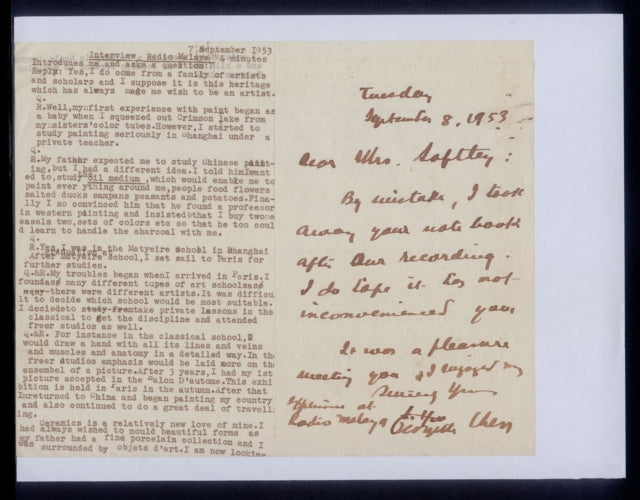 7 September 1953
Interview Radio Malaya 5 minutes
Introduces me and asks a question:
Reply: Yes,I do come from a family of artists
and scholars and I suppose it is this heritage
which has always made me wish to be an artist.
Q.
R.Well,my first experience with paint began as
a baby when I squeezed out Crimson lake from
my sisters'color tubes.However,I started to
study painting seriously in Shanghai under a
private teacher.
Q.
R.My father expected me to study Chinese paint-
ing,but I had a different idea.I told him I want
ed to, study oil medium ,which would enable me to
paint ever ything around me,people food flowers
salted ducks sampans peasants and potatoes.Fina-
lly I so convinced him that he found a professor
in western painting and insisted that I buy two
easels two,sets of colors etc so that he too coul
d learn to handle the charcoal with me.
Q.
R.Yes,I was in the Motyeire School in Shanghai
After Motyeire School,I set sail to Paris for
further studies.
Q.&R.My troubles began when I arrived in Paris.I
found as many different types of art schools as
many there were different artists.It was difficu
lt to decide which school would be most suitable.
I decided to study from take private lessons in the
classical to get the discipline and attended
freer studios as well.
Q.&R. For instance in the classical school,I
would draw a hand with all its lines and veins
and muscles and anatomy in a detailed way.In the
freer studios emphasis would be laid more on the
ensembel of a picture.After 3 years,I had my 1st
picture accepted in the Salon D'automne.This exhi
bition is held in Paris in the autumn.After that
I returned to China and began painting my country
and also continued to do a great deal of travell
ing.
Ceramics is a relatively new love of mine.I
had always wished to mould beautiful forms as
my father had a fine porcelain collection and I
was surrounded by objets d'art.I am now looking
Tuesday
September 8, 1953
Dear Mrs. Softley:
By mistake, I took
away your note book
after our recording.
I do hope it has not
inconvenienced you.
It was a pleasure
meeting you & I enjoyed my
experience at
Radio Malaya
Sincerely Yours
Georgette Chen